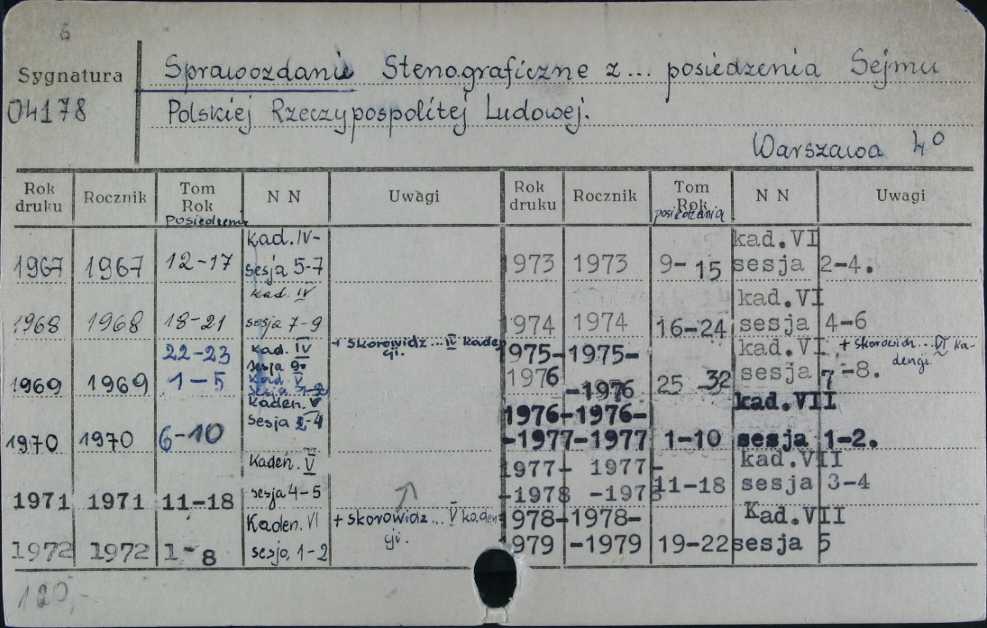 6
Sygnatura Sprawozdanie Stenograficzne z... posiedzenia Sejmu
04178 Polskiej Rzeczypospolitej Ludowej.
Warszawa 4°
Rok druku Rocznik Tom Rok posiedzenia N N Uwagi Rok druku Rocznik Tom Rok posiedzenia N N Uwagi
1967 1967 12-17 kad. IV- sesja 5-7
1968 1968 18-21 kad. IV sesja 7-9
22-23 kad. IV sesja 9. + skorowidz ... IV kadengi.
1969 1969 1-5 kad. V sesja 1-2
1970 1970 6-10 kaden. V sesja 2-4
1971 1971 11-18 kaden. V sesja 4-5
1972 1972 1-8 Kaden. VI sesja 1-2 + skorowidz ... V kadengi.
973 1973 9-15 kad.VI sesja 2-4.
974 1974 16-24 kad.VI sesja 4-6
1975-1976 1975-1976 25-32 kad.VI sesja 7-8. + skorowidz ... VI kadengi.
1976-1977 1976-1977 1-10 kad.VII sesja 1-2.
1977-1978 1977-1978 11-18 kad.VII sesja 3-4
978-979 1978-1979 19-22 Kad.VII sesja 5
120,-